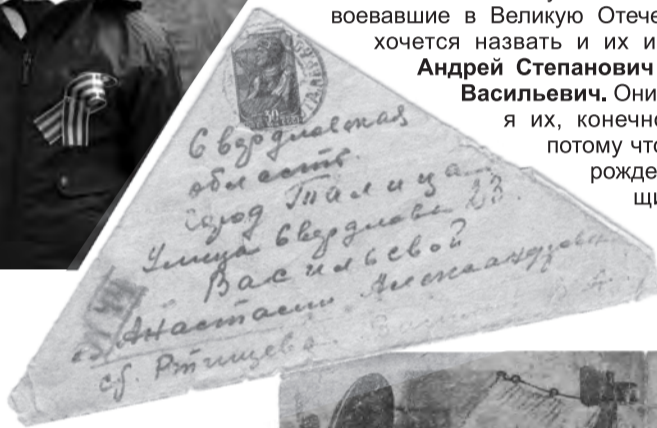 воевавшие в Великую Отече
хочется назвать и их и
Андрей Степанович
Васильевич. Они
я их, конечно
потому что
рожде
щи
30
Свердловская
область.
город Талица
Улица Свердлова 23.
Васильевой
Анастасии Александровне
Ртищева